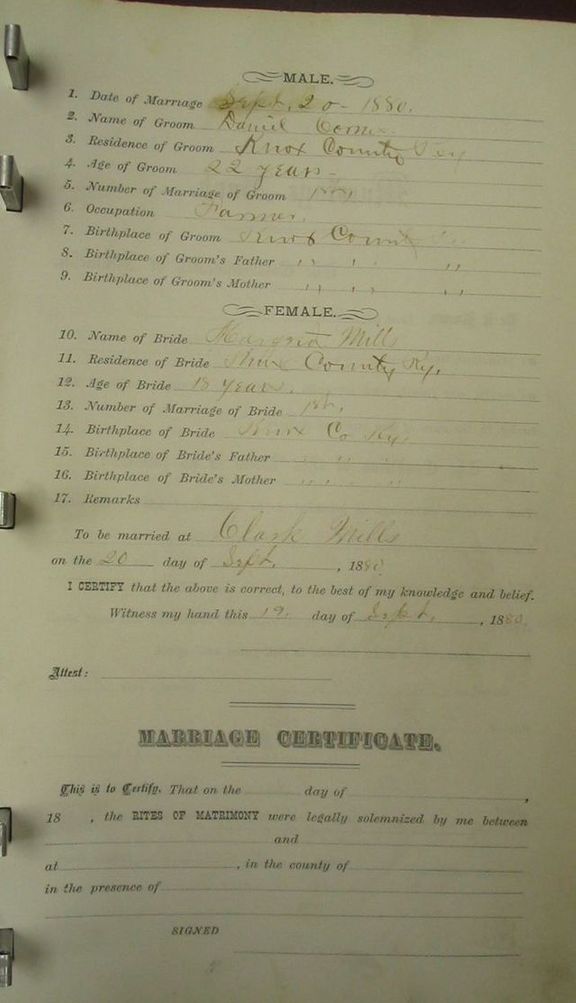 MALE.
1. Date of Marriage Sept. 20 - 1880.
2. Name of Groom Daniel
3. Residence of Groom Knox County Ky
4. Age of Groom 22 years
5. Number of Marriage of Groom 1st
6. Occupation Farmer
7. Birthplace of Groom Knox County
8. Birthplace of Groom's Father " " "
9. Birthplace of Groom's Mother " " "
FEMALE.
10. Name of Bride Mills
11. Residence of Bride Knox County Ky.
12. Age of Bride 18 years.
13. Number of Marriage of Bride 1st.
14. Birthplace of Bride Knox Co Ky.
15. Birthplace of Bride's Father " " "
16. Birthplace of Bride's Mother " " "
17. Remarks
To be married at Clark Mills
on the 20 day of Sept. , 1880
I CERTIFY that the above is correct, to the best of my knowledge and belief.
Witness my hand this 19. day of Sept. , 1880.
Attest:
MARRIAGE CERTIFICATE.
This is to Certify, That on the day of ,
18 , the RITES OF MATRIMONY were legally solemnized by me between
and
at , in the county of
in the presence of
SIGNED